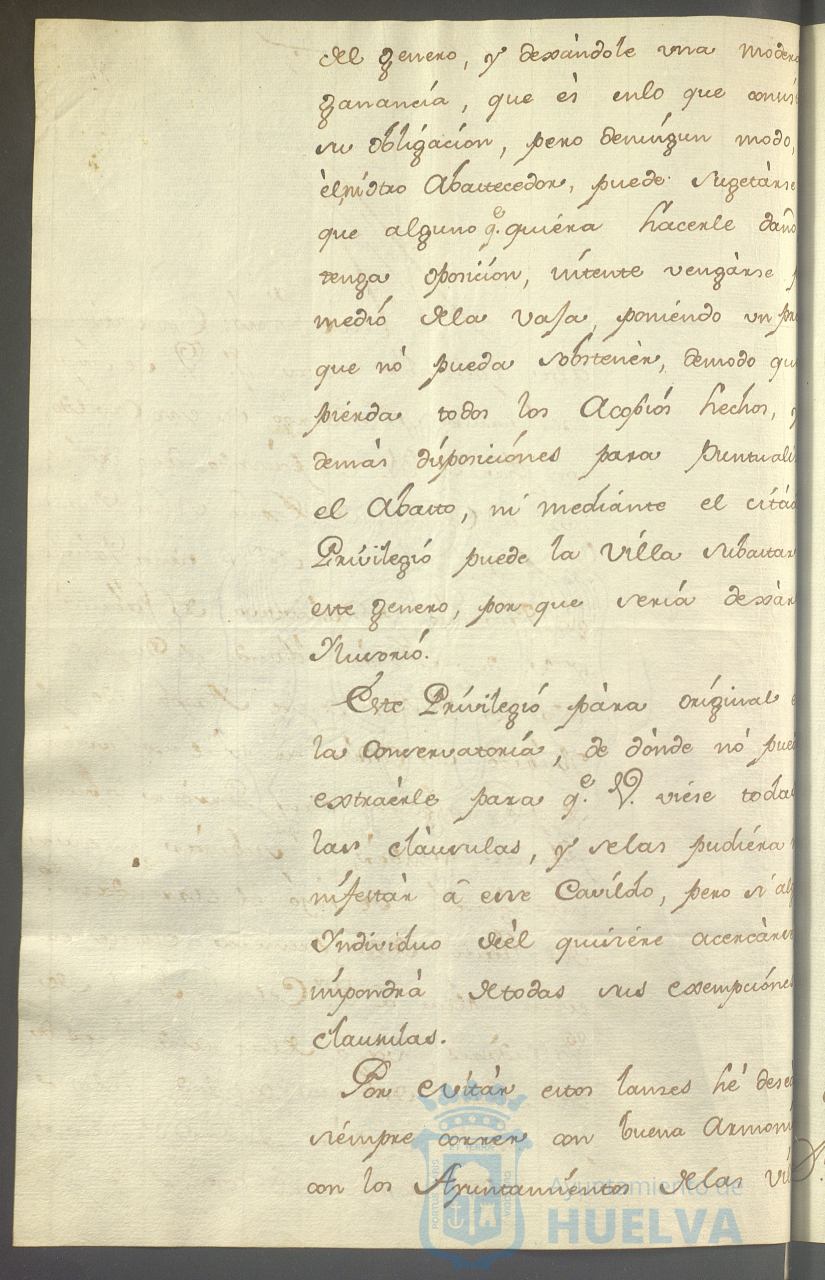 del genero, y dexàndole una modera
ganancía, que ès enlo que consis
su obligacíon, pero deningun modo,
èl, ni òtro Abastecedor, puede sugetàrse
que alguno q.e quiéra hàcerle dañò
tenga òposicíon, intente vengàrse p
medìo dela vaja, poniéndo un pre
que nò pueda sobstenèr, demodo que
piérda todos los Acopios hechos, y
demàs disposiciónes para puntuali
el Abasto, ni mediànte el citàd
Privilegió puede la Villa subastar
este genero, por que serìa dexàr
Ilusorió.
Este Privilegió pàra original e
la Conservatoría, de dònde nò pued
extraèrle para q.e V. viése toda
las clàusulas, y selas pudiéra
nifestàr â ese Cavíldo, pero si alg
Individuo deèl quisiére acercàrse
impondrà detodas sus exempciónes
clausulas.
Por evitàr estos lanses hé dese
siémpre correr con buena Armoni
con los Ayuntamiéntos delas Vil
Ayuntamiento de
HUELVA